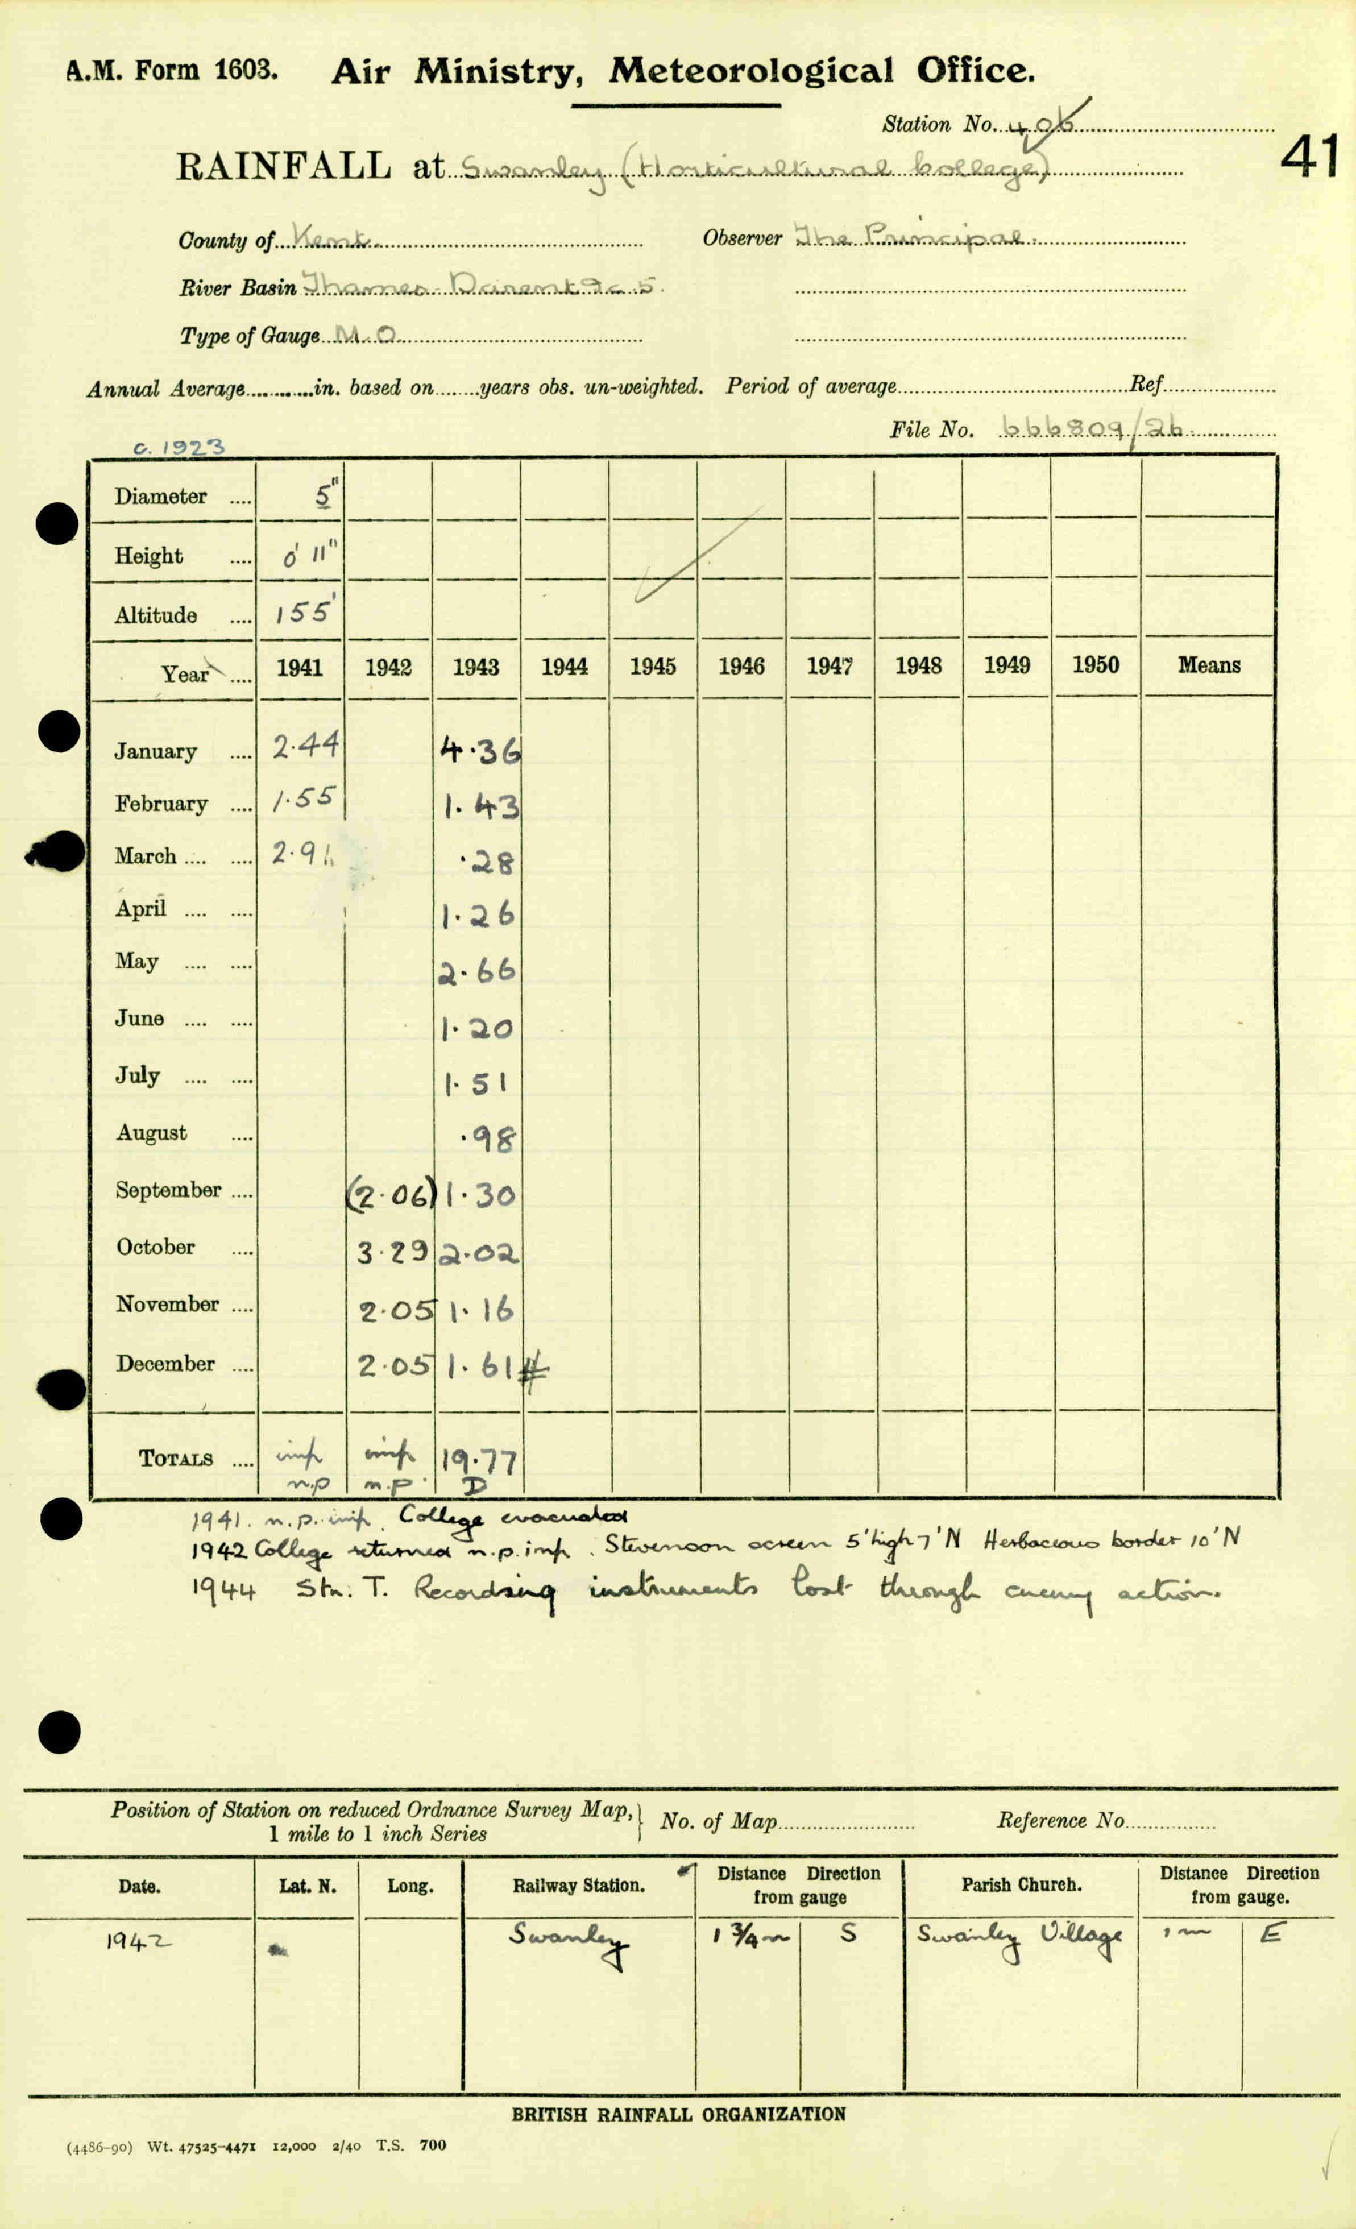 A.M. Form 1603. Air Ministry, Meteorological Office.
Station No. 406
41
RAINFALL at Swanley (Horticultural College)
County of Kent Observer The Principal.
River Basin Thames - Darent 9c.5.
Type of Gauge M.O.
Annual Average............in. based on.......years obs. un-weighted. Period of average.............Ref.............
File No. 666809/26
c. 1923
Diameter .... 5"
Height .... 0' 11"
Altitude .... 155'
Year .... 1941 1942 1943 1944 1945 1946 1947 1948 1949 1950 Means
January .... 2.44 4.36
February .... 1.55 1.43
March .... .... 2.91 .28
April .... .... 1.26
May .... .... 2.66
June .... .... 1.20
July .... .... 1.51
August .... .98
September .... (2.06) 1.30
October .... 3.29 2.02
November .... 2.05 1.16
December .... 2.05 1.61 #
TOTALS .... imp imp 19.77
n.p n.p. D
1941. n.p. imp. College evacuated
1942 College returned n.p. imp. Stevenson screen 5' high 7'N Herbaceous border 10'N
1944 Stn. T. Recording instruments lost through enemy action.
Position of Station on reduced Ordnance Survey Map, } No. of Map............ Reference No............
1 mile to 1 inch Series
Date. Lat. N. Long. Railway Station. Distance Direction from gauge Parish Church. Distance Direction from gauge.
1942 Swanley 1 3/4 m S Swanley Village 1 m E
BRITISH RAINFALL ORGANIZATION
(4486-90) Wt. 47525-4471 12,000 2/40 T.S. 700